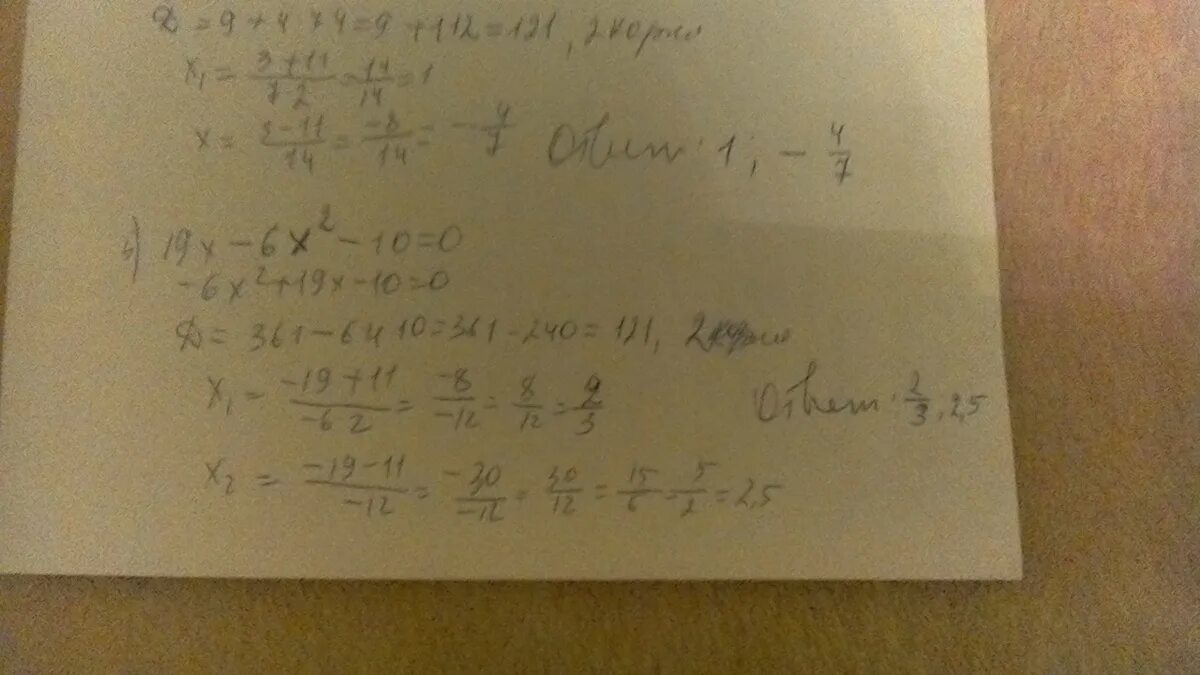 D = 9 + 4·7·4 = 9 + 112 = 121, 2 корня
x₁ = (3+11)/(7·2) = 14/14 = 1
x = (3-11)/14 = -8/14 = -4/7 Ответ: 1; -4/7
б) 19x - 6x² - 10 = 0
-6x² + 19x - 10 = 0
D = 361 - 6·4·10 = 361 - 240 = 121, 2 корня
x₁ = (-19+11)/(-6·2) = -8/-12 = 8/12 = 2/3 Ответ: 2/3, 2,5
x₂ = (-19-11)/-12 = -30/-12 = 30/12 = 15/6 = 5/2 = 2,5